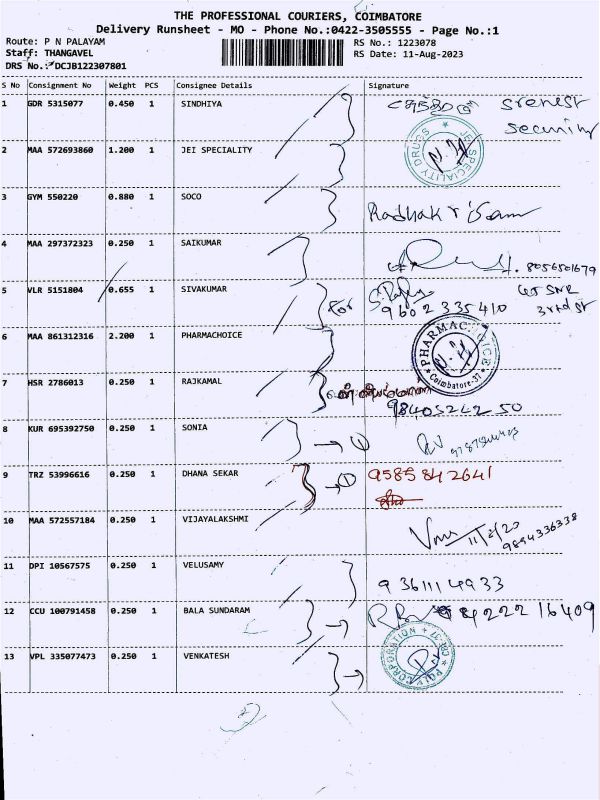 THE PROFESSIONAL COURIERS, COIMBATORE
Delivery Runsheet - MO - Phone No.:0422-3505555 - Page No.:1
Route: P N PALAYAM RS No.: 1223078
Staff: THANGAVEL RS Date: 11-Aug-2023
DRS No.: DCJB122307801
S No Consignment No Weight PCS Consignee Details Signature
1 GDR 5315077 0.450 1 SINDHIYA
security
2 MAA 572693860 1.200 1 JEI SPECIALITY JEI SPECIALITY DRUGS
3 GYM 550220 0.880 1 SOCO
4 MAA 297372323 0.250 1 SAIKUMAR 8056501679
5 VLR 5151804 0.655 1 SIVAKUMAR for
9602335410
6 MAA 861312316 2.200 1 PHARMACHOICE PHARMACHOICE Coimbatore-37
7 HSR 2786013 0.250 1 RAJKAMAL
9840524250
8 KUR 695392750 0.250 1 SONIA
9 TRZ 53996616 0.250 1 DHANA SEKAR 9585842641
10 MAA 572557184 0.250 1 VIJAYALAKSHMI 9894336338
11 DPI 10567575 0.250 1 VELUSAMY 9361114933
12 CCU 100791458 0.250 1 BALA SUNDARAM
13 VPL 335077473 0.250 1 VENKATESH